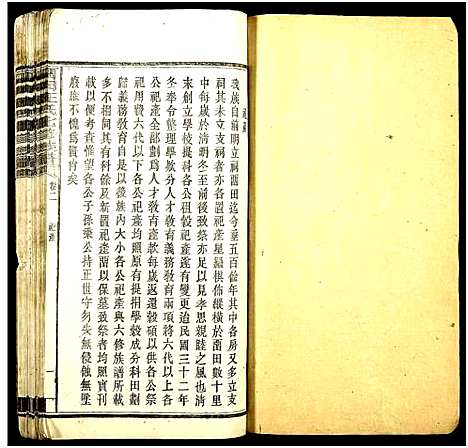 祀產
我族自前明立祠莆田迄今垂五百餘年其中各房又立支
祠其未立支祠者亦各置祀產星羅棋佈縱橫於莆田數十里
中每歲於清明冬至前後致祭亦足以見孝思親睦之風也清
末創立學校提科各公租穀祀產遂有變更迨民國三十二年
冬奉令整理學款分人才敎育義務敎育兩項將六代以上各
公祀產全部劃爲人才敎育產款每歲返還穀碩以供各公祭
祀用費六代以下各公祀產均照原有提捐學穀成分科田劃
歸義務敎育自是以後族內大小各公祀產與六修族譜所載
均有科除多寡之殊茲編各公祀產係依照科餘及新置祀產
載以便考查惟望各公子孫秉公持正世守勿失無侵蝕無墜
廢庶不愧爲賢肖矣
卷二
祀產
一